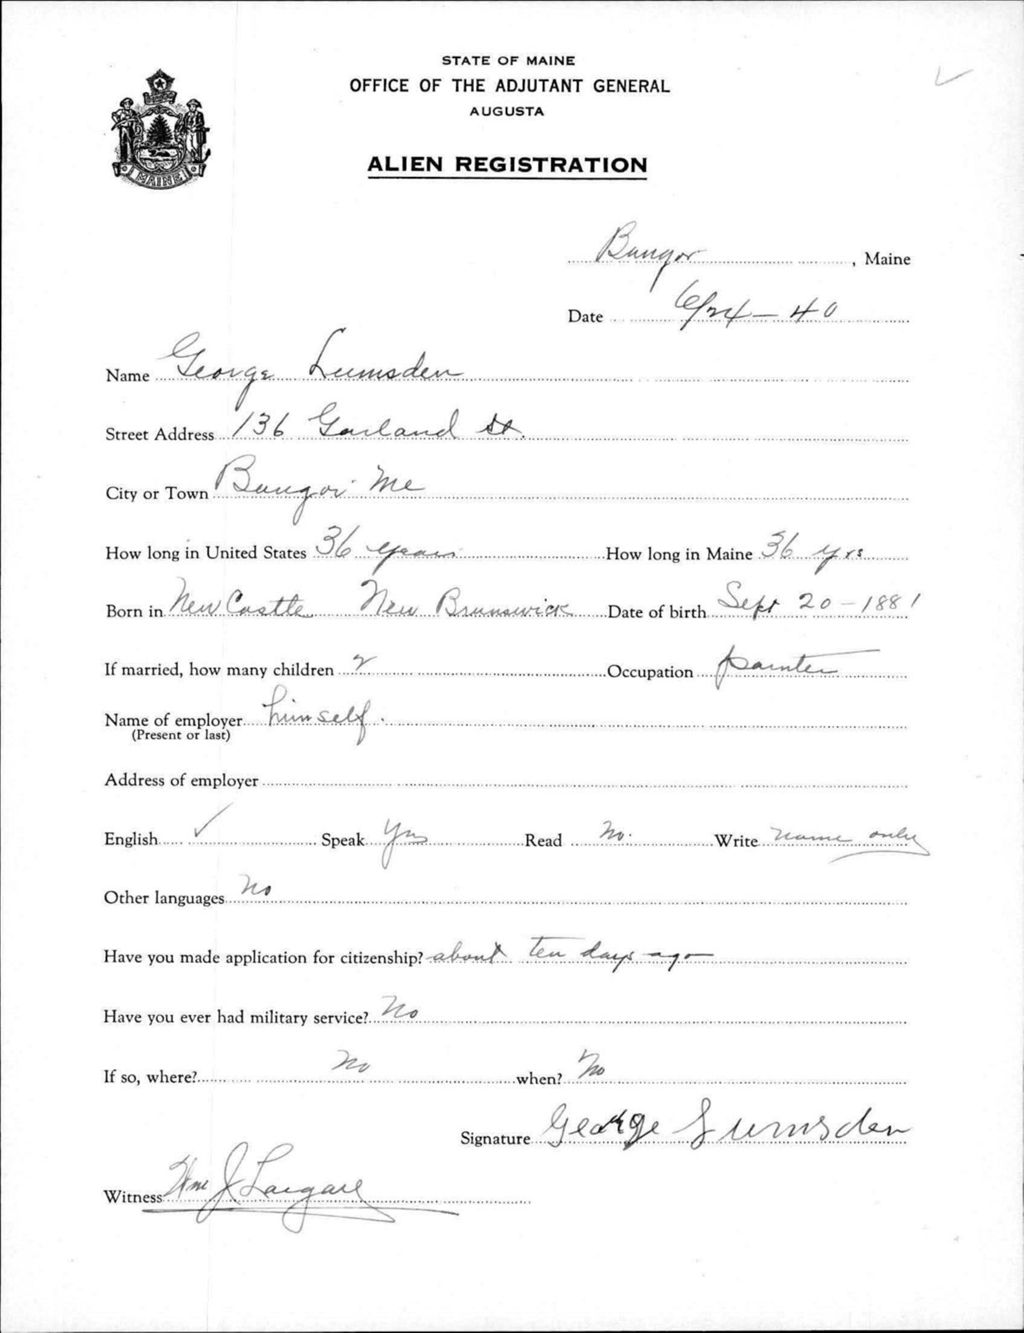 STATE OF MAINE
OFFICE OF THE ADJUTANT GENERAL
AUGUSTA
MAINE
ALIEN REGISTRATION
Bangor, Maine
Date 6/24-40
Name George Lumsden
Street Address 136 Garland St.
City or Town Bangor Me
How long in United States 36 years How long in Maine 36 yrs
Born in New Castle New Brunswick Date of birth Sept 20-1881
If married, how many children 2 Occupation painter
Name of employer himself.
(Present or last)
Address of employer
English ✓ Speak Yes Read No. Write name only
Other languages No
Have you made application for citizenship? about ten days ago
Have you ever had military service? No
If so, where? No when? No
Signature George Lumsden
Witness Wm J